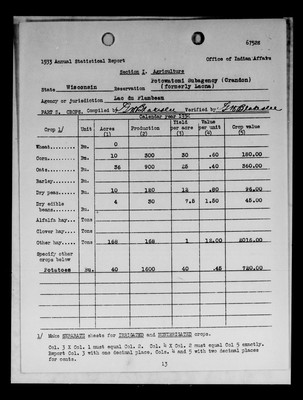 67528
1933 Annual Statistical Report Office of Indian Affairs
Section I. Agriculture
Potowatomi Subagency (Crandon)
State Wisconsin Reservation (formerly Laona)
Agency or Jurisdiction Lac du Flambeau
PART 2. CROPS. Compiled by Verified by
Calendar year 1934
Crop 1/ Unit Acres (1) Production (2) Yield per acre (3) Value per unit (4) Crop value (5)
Wheat........ Bu. 0
Corn......... Bu. 10 300 30 .60 180.00
Oats......... Bu. 36 900 25 .40 360.00
Barley....... Bu.
Dry peas..... Bu. 10 120 12 .80 96.00
Dry edible
beans....... Bu. 4 30 7.5 1.50 45.00
Alfalfa hay.. Tons
Clover hay... Tons
Other hay.... Tons 168 168 1 12.00 2016.00
Specify other
crops below
Potatoes Bu. 40 1600 40 .45 720.00
1/ Make SEPARATE sheets for IRRIGATED and UNIRRIGATED crops.
Col. 3 X Col. 1 must equal Col. 2. Col. 4 X Col. 2 must equal Col 5 exactly.
Report Col. 3 with one decimal place. Cols. 4 and 5 with two decimal places
for cents.
13